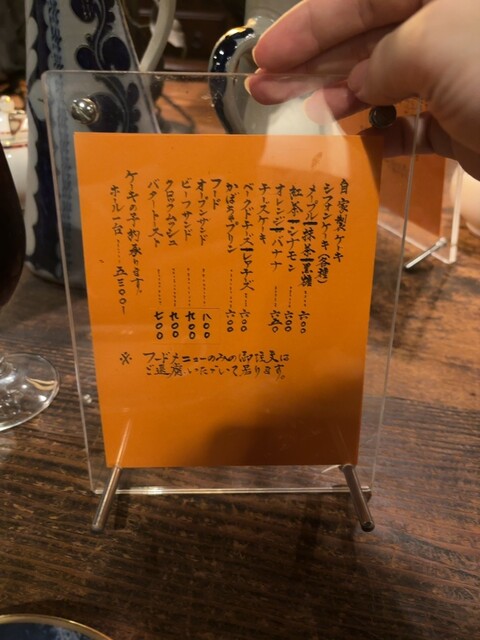 自家製ケーキ
シフォンケーキ(各種)
メープル|抹茶|黒糖……六〇〇
紅茶|シナモン……六〇〇
オレンジ|バナナ……六五〇
チーズケーキ
ベークドチーズ|レヤチーズ…六〇〇
かぼちゃプリン………六〇〇
フード
オープンサンド………八〇〇
ビーフサンド………九〇〇
クロックムッシュ………九〇〇
バタートースト………七〇〇
ケーキの予約承ります。
ホール一台……五三〇〇〜
※ フードメニューのみの御注文は
ご遠慮いただいて居ります。